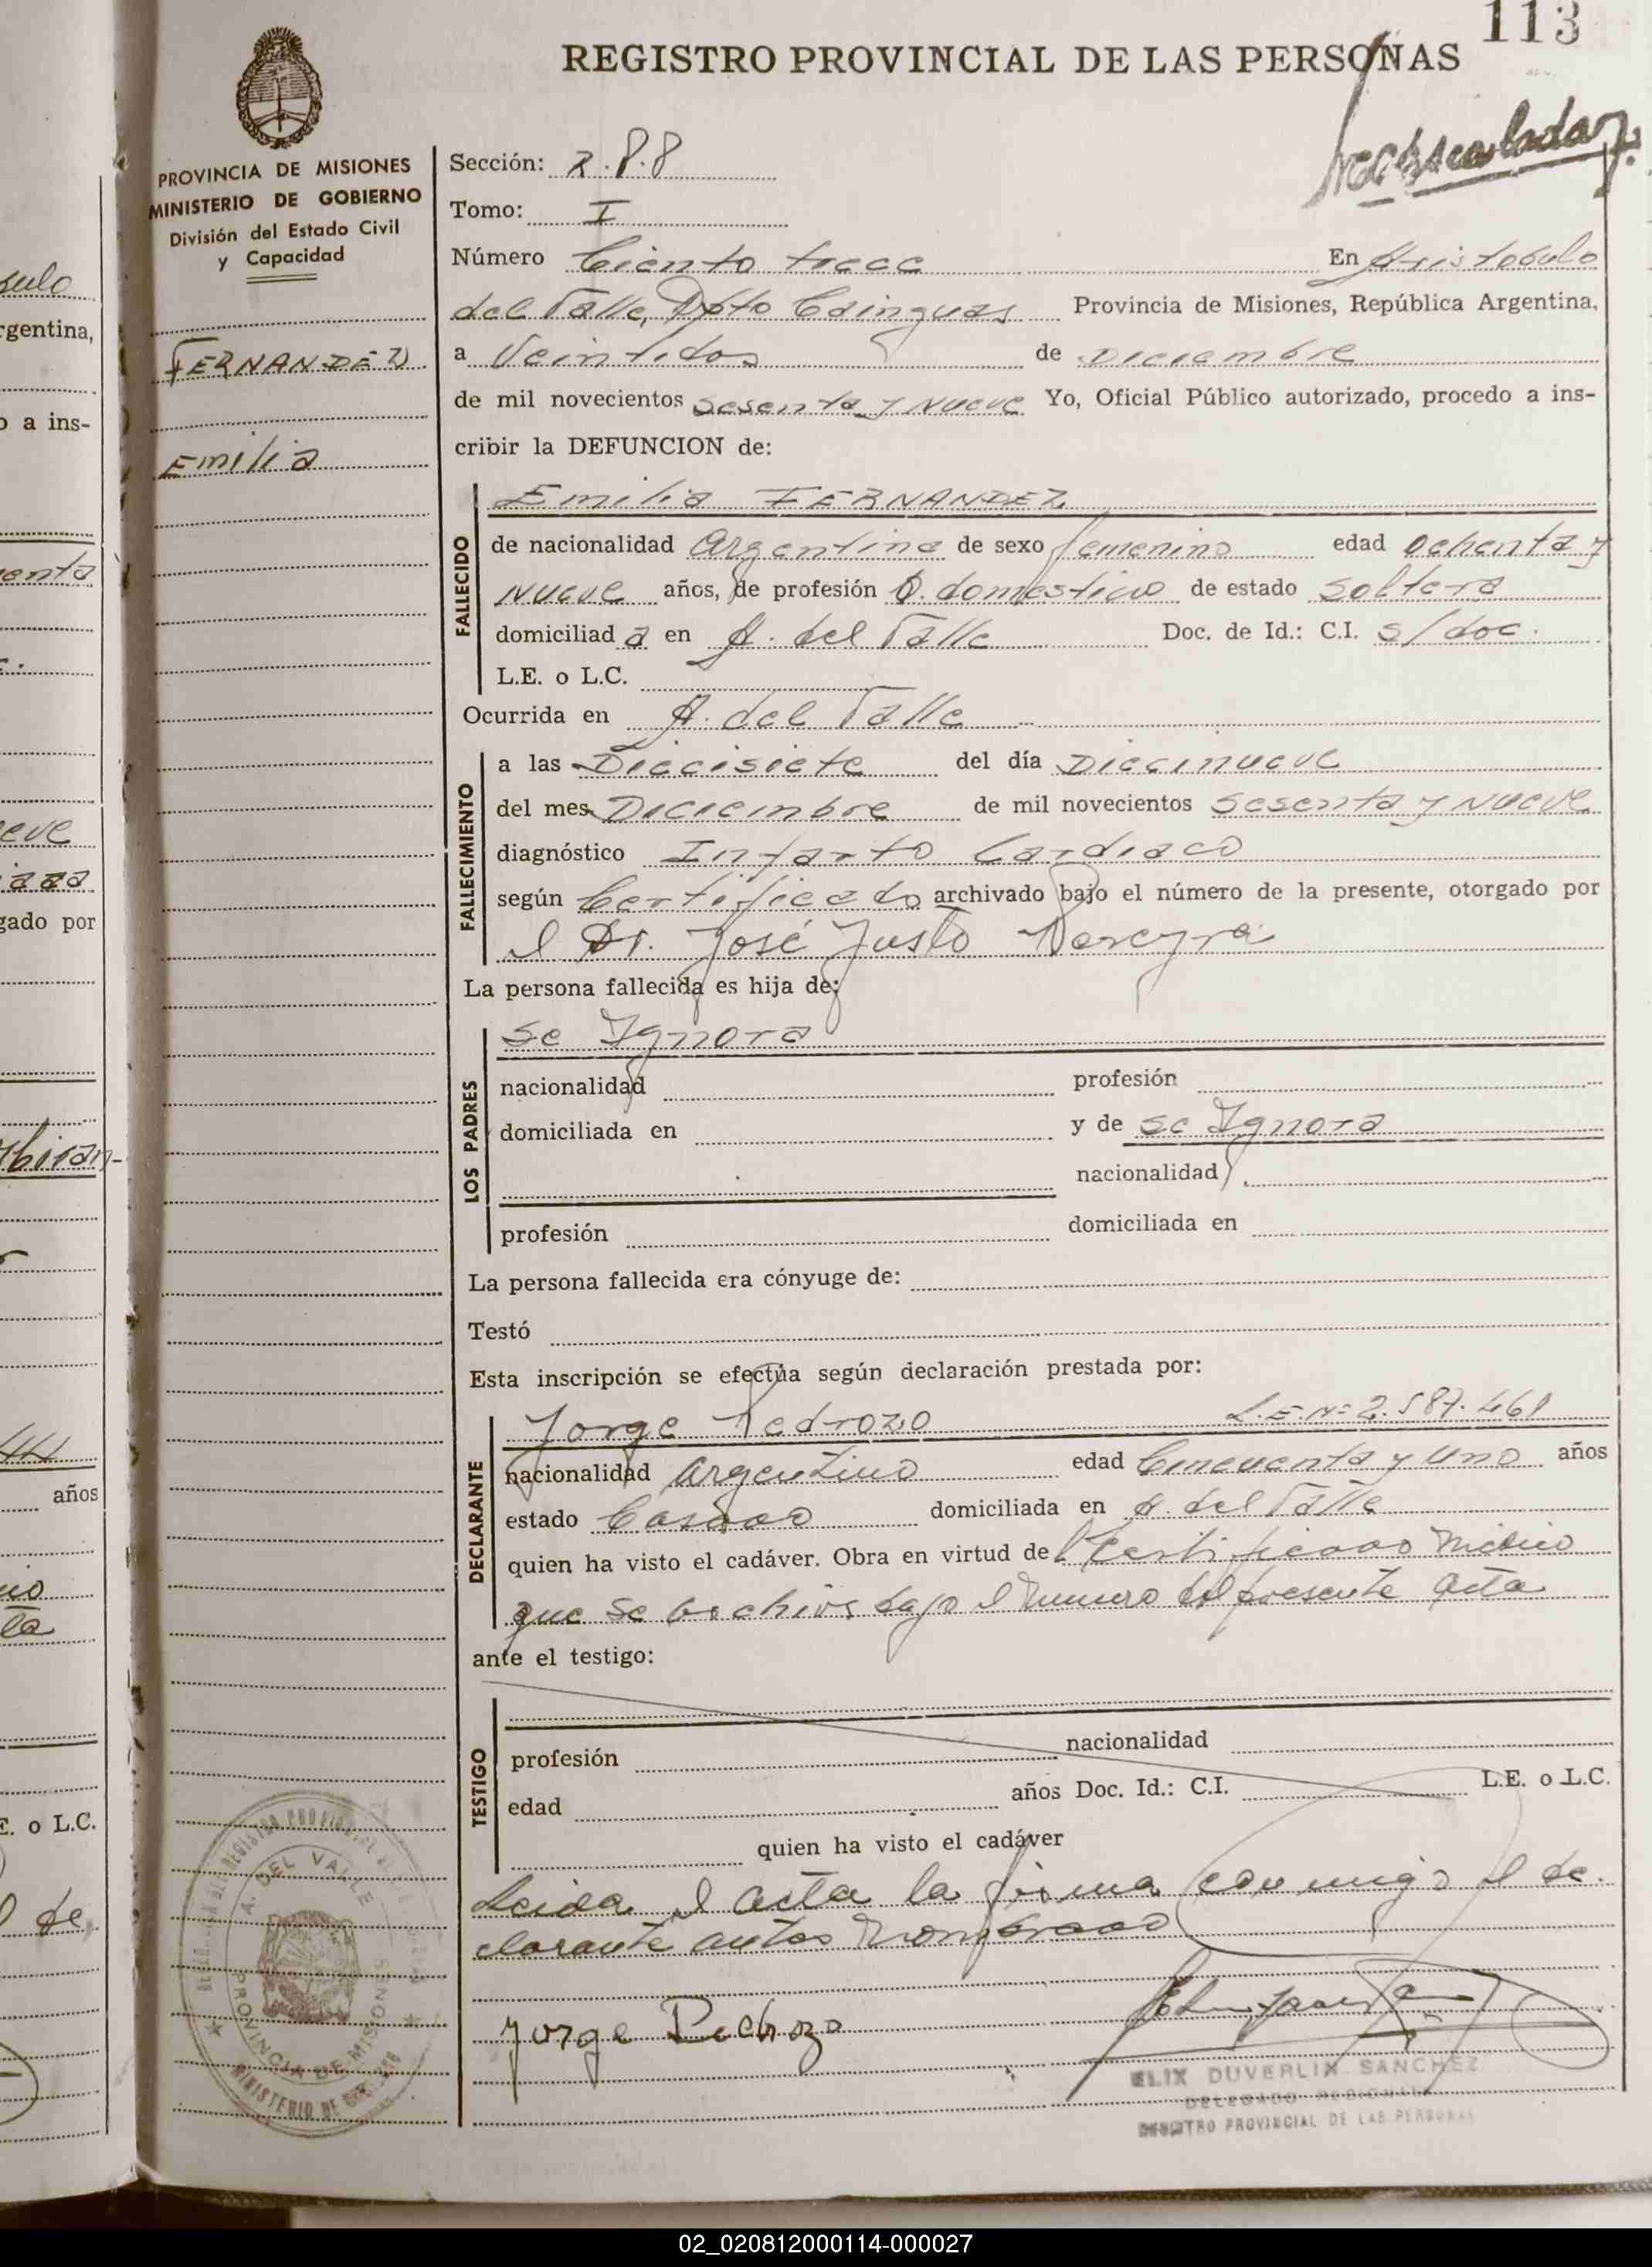 113
REGISTRO PROVINCIAL DE LAS PERSONAS
PROVINCIA DE MISIONES
MINISTERIO DE GOBIERNO
División del Estado Civil
y Capacidad
FERNANDEZ
Emilia
Sección: 2.P.P
Tomo: I
Número Ciento trece En Aristobulo
del Valle, Dpto Cainguas Provincia de Misiones, República Argentina,
a Veintidos de Diciembre
de mil novecientos sesenta y Nueve Yo, Oficial Público autorizado, procedo a ins-
cribir la DEFUNCION de:
Emilia FERNANDEZ
FALLECIDO
de nacionalidad Argentina de sexo femenino edad ochenta y
Nueve años, de profesión Q. domestico de estado soltera
domiciliad a en A. del Valle Doc. de Id.: C.I. s/doc.
L.E. o L.C.
Ocurrida en A. del Valle
FALLECIMIENTO
a las Diecisiete del día Diecinueve
del mes Diciembre de mil novecientos Sesenta y Nueve
diagnóstico Infarto Cardiaco
según Certificado archivado bajo el número de la presente, otorgado por
el Dr. José Justo Pereyra
La persona fallecida es hija de:
LOS PADRES
se Ignora
nacionalidad profesión
domiciliada en y de se Ignora
nacionalidad
profesión domiciliada en
La persona fallecida era cónyuge de:
Testó
Esta inscripción se efectúa según declaración prestada por:
DECLARANTE
Jorge Pedrozo L.E.Nº 2.587.461
nacionalidad argentino edad Cincuenta y uno años
estado Casado domiciliada en A. del Valle
quien ha visto el cadáver. Obra en virtud del Certificado medico
que se archiva bajo el numero del presente acta
ante el testigo:
TESTIGO
profesión nacionalidad
edad años Doc. Id.: C.I. L.E. o L.C.
quien ha visto el cadáver
Leida el acta la firma conmigo el de
clarante antes nombrado
Jorge Pedrozo
ELIX DUVERLIX SANCHEZ
DELEGADO REGIONAL
REGISTRO PROVINCIAL DE LAS PERSONAS
A. DEL VALLE
PROVINCIA DE MISIONES
02_020812000114-000027